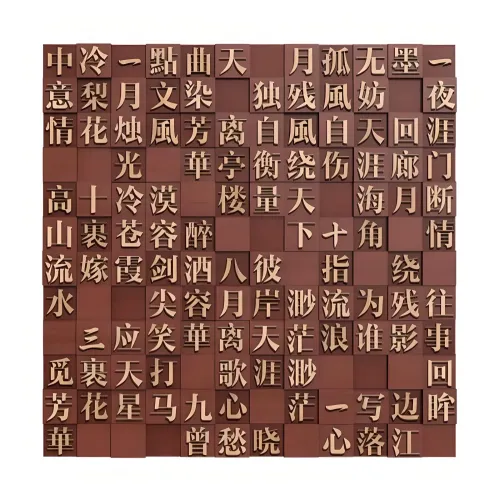 一夜涯门断情 往事回眸
墨 回廊月 绕残影 边江
无妨天涯海角 为谁 写落
孤風自伤 十指流浪 一心
月残風绕天下 渺茫渺茫
独自衡量 彼岸天涯 晓
天 离亭楼 八月离歌心愁
曲染芳華 醉酒容華 九曾
點文風 漠容剑尖笑打马
一月烛光冷苍霞 应天星
冷梨花 十裹嫁 三裹花
中意情 高山流水 觅芳華